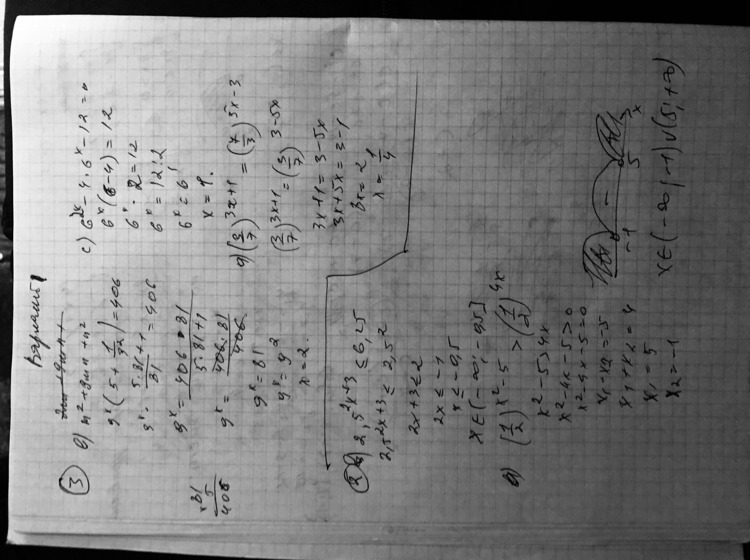 Вариант 1
③
в) m² + 2mn + n²
9ˣ(5 + 1/9²) = 406
9ˣ · (5·81+1)/81 = 406
9ˣ = (406 · 81)/(5·81+1)
9ˣ = (406 · 81)/406
9ˣ = 81
9ˣ = 9²
x = 2.
× 81
5
405
с) 6²ˣ - 4 · 6ˣ - 12 = 0
6ˣ(6-4) = 12
6ˣ · 2 = 12
6ˣ = 12:2
6ˣ = 6¹
x = 1.
(3/7)³ˣ⁺¹ = (7/3)⁵ˣ⁻³
(3/7)³ˣ⁺¹ = (3/7)³⁻⁵ˣ
3x+1 = 3-5x
3x+5x = 3-1
8x = 2
x = 1/4
②
2,5²ˣ⁺³ ≤ 6,25
2,5²ˣ⁺³ ≤ 2,5²
2x+3 ≤ 2
2x ≤ -1
x ≤ -0,5
x ∈ (-∞; -0,5]
в) (1/2)^(x²-5) > (1/2)^(4x)
x²-5 > 4x
x²-4x-5 > 0
x²-4x-5 = 0
x₁ · x₂ = -5
x₁ + x₂ = 4
x₁ = 5
x₂ = -1
-1 - 5 x
x ∈ (-∞; -1) ∪ (5; +∞)